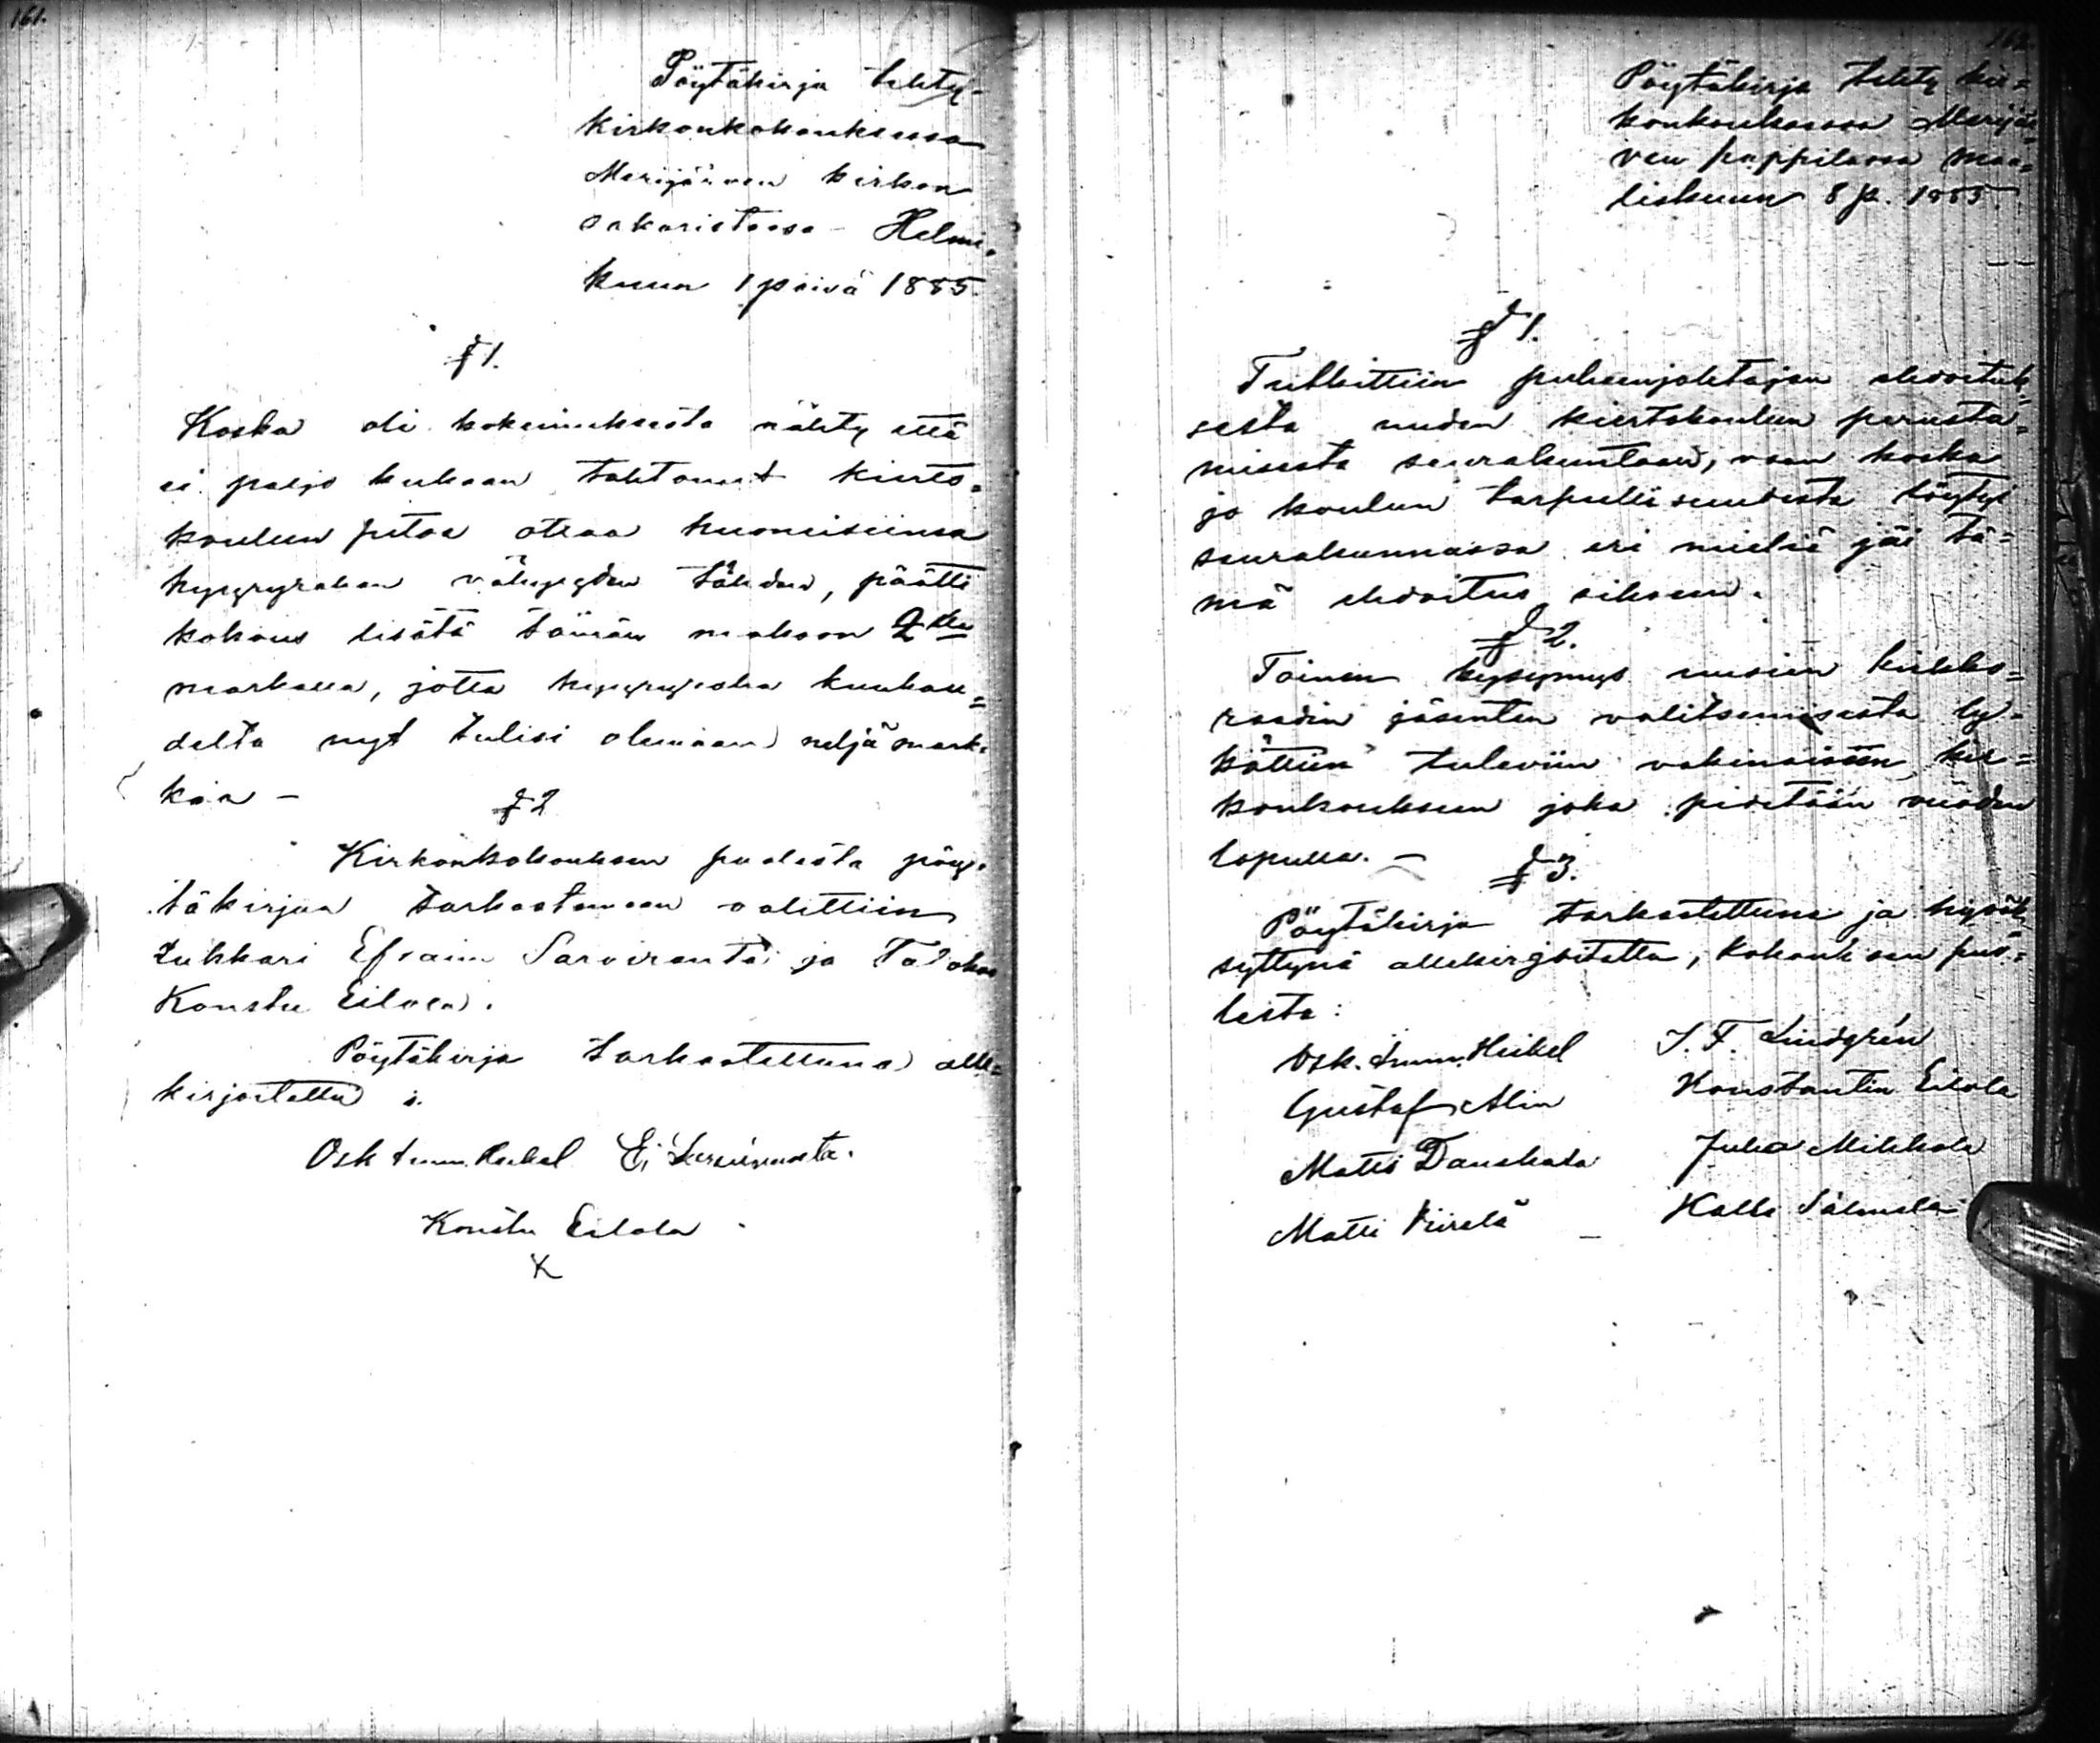 161.
Pöytäkirja tehty
kirkonkokouksessa
Merijärven kirkon
sakaristossa Helmi-
kuun 1 päivä 1885.
§ 1.
Koska oli kokemuksesta nähty että
ei paljo kukaan tahtonut kierto-
koulun pitoa ottaa huoneisiinsa
hyyryrahan vähyyden tähden, päätti
kokous lisätä tämän maksun 2:lla
markalla, jotta hyyryraha kuukau=
delta nyt tulisi olemaan neljä mark-
kaa –
§ 2
Kirkonkokouksen puolesta pöy-
täkirjaa tarkastamaan valittiin
Lukkari Efraim Sarviranta ja Talokas
Konstu Eilola.
Pöytäkirja tarkastettuna alle=
kirjoitettu :
Osk Imm. Heikel E Sarviranta.
Konstu Eilola
X
162.
Pöytäkirja tehty kir=
konkouksessa Merijär=
ven pappilassa maa=
liskuun 8 p. 1885.
§ 1.
Tutkittiin puheenjohtajan ehdoituk=
sesta uuden kiertokoulun perusta=
misesta seurakuntaan, vaan koska
jo koulun tarpeellisuudesta löytyi
seurakunnassa eri mieliä jäi tä=
mä ehdoitus sikseen.
§ 2.
Toinen kysymys uusien kirkko=
raadin jäsenten valitsemisesta ly=
kättiin tuleviin vakinaiseen kir=
konkouksen joka pidetään vuoden
lopulla. –
§ 3.
Pöytäkirja tarkastettuna ja hyväk=
syttynä allekirjoitettu, kokouksen puo=
lesta :
Osk. Imm. Heikel J. F. Lindgrén
Gustaf Alin Konstantin Eilola
Matti Danska Juho Mikkola
Matti Viirelä – Kalle Salmela